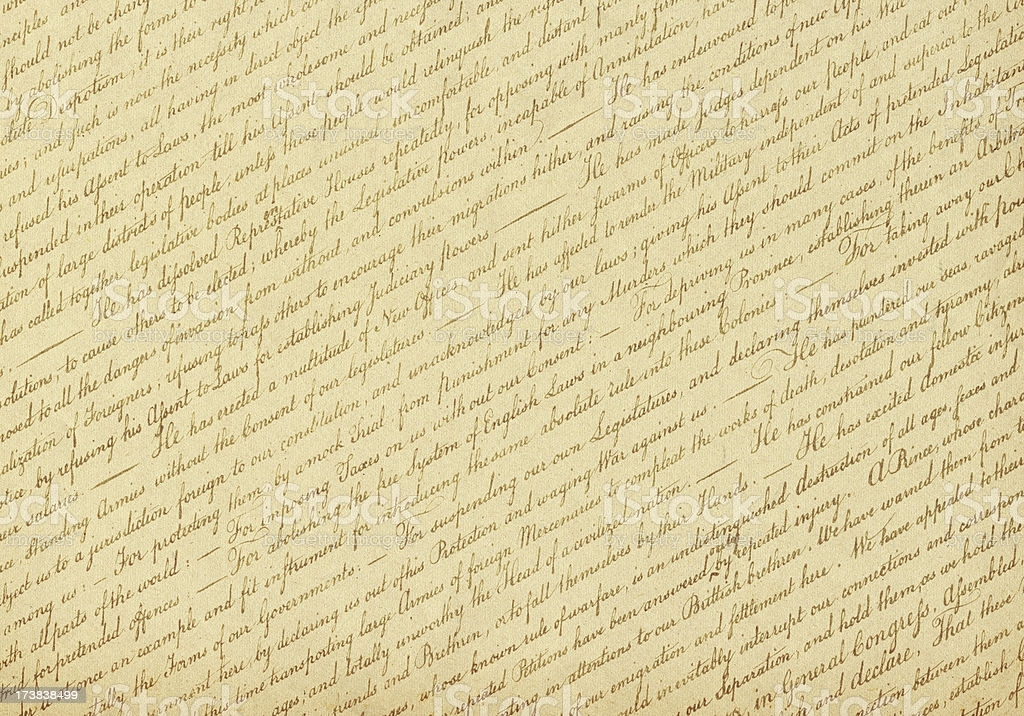 nciples and
should not be chang
abolishing the forms to
Despotism, it is their right, it
ies; and such is now the necessity which con
s and usurpations, all having in direct object the es
refused his Assent to Laws, the most wholesome and necessary
suspended in their operation till his Assent should be obtained; and
ation of large districts of people, unless those people would relinquish the right
has called together legislative bodies at places unusual, uncomfortable, and distant from
— He has dissolved Representative Houses repeatedly, for opposing with manly firm
olutions, to cause others to be elected; whereby the Legislative Powers, incapable of Annihilation, have
posed to all the dangers of invasion from without, and convulsions within. — He has endeavoured to p
alization of Foreigners; refusing to pass others to encourage their migrations hither, and raising the conditions of new App
tice by refusing his Assent to Laws for establishing Judiciary powers. — He has made Judges dependent on his Will
eir salaries. — He has erected a multitude of New Offices, and sent hither swarms of Officers to harrass our People, and eat out
ce, Standing Armies without the Consent of our legislatures. — He has affected to render the Military independent of and superior to the Ci
bject us to a jurisdiction foreign to our constitution, and unacknowledged by our laws; giving his Assent to their Acts of pretended Legislatio
among us: — For protecting them, by a mock Trial, from punishment for any Murders which they should commit on the Inhabitan
with all parts of the world: — For imposing Taxes on us without our Consent: — For depriving us in many cases, of the benefits of Tr
for pretended offences — For abolishing the free System of English Laws in a neighbouring Province, establishing therein an Arbitra
der it at once an example and fit instrument for introducing the same absolute rule into these Colonies — For taking away our Ch
tally the Forms of our Governments: — For suspending our own Legislatures, and declaring themselves invested with pow
ernment here, by declaring us out of his Protection and waging War against us. — He has plundered our seas, ravaged
this time transporting large Armies of foreign Mercenaries to compleat the works of death, desolation and tyranny, alre
ages, and totally unworthy the Head of a civilized nation. — He has constrained our fellow Citizens
friends and Brethren, or to fall themselves by their Hands. — He has excited domestic insur
whose known rule of warfare, is an undistinguished destruction of all ages, sexes and
repeated Petitions have been answered only by repeated injury. A Prince, whose charac
ting in attentions to our Brittish brethren. We have warned them from ti
of our emigration and settlement here. We have appealed to their
ld inevitably interrupt our connections and correspon
Separation, and hold them, as we hold the
s, in General Congress, Assembled,
and declare, That these
ection between them a
nces, establish C
ration of
iStock
by Getty Images
173838499